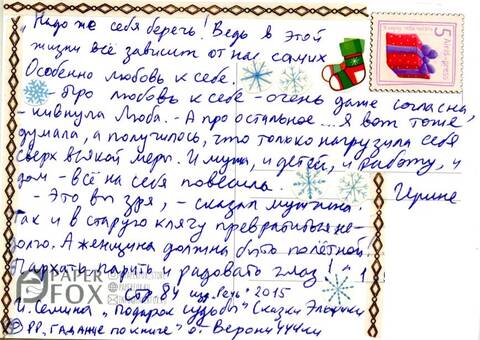 „Надо же себя беречь! Ведь в этой
жизни всё зависит от нас самих
Особенно любовь к себе.
- Про любовь к себе - очень даже согласна,
- кивнула Люба. - А про остальное... Я вот тоже
думала, а получилось, что только нагрузила себя
сверх всякой меры. И мужа, и детей, и работу, и
дом - всё на себя повесила.
- Это вы зря, - сказал мужчина.
Так и в старую клячу превратиться не-
долго. А женщина должна быть полётной!
Пархать парить и радовать глаз!"
Ирине
PAPER
FOX
стр. 84 изд. „Речь" 2015
И. Семина „Подарок судьбы" Сказки Эльфики
РР „Гадание по книге" от Верони444ки
5